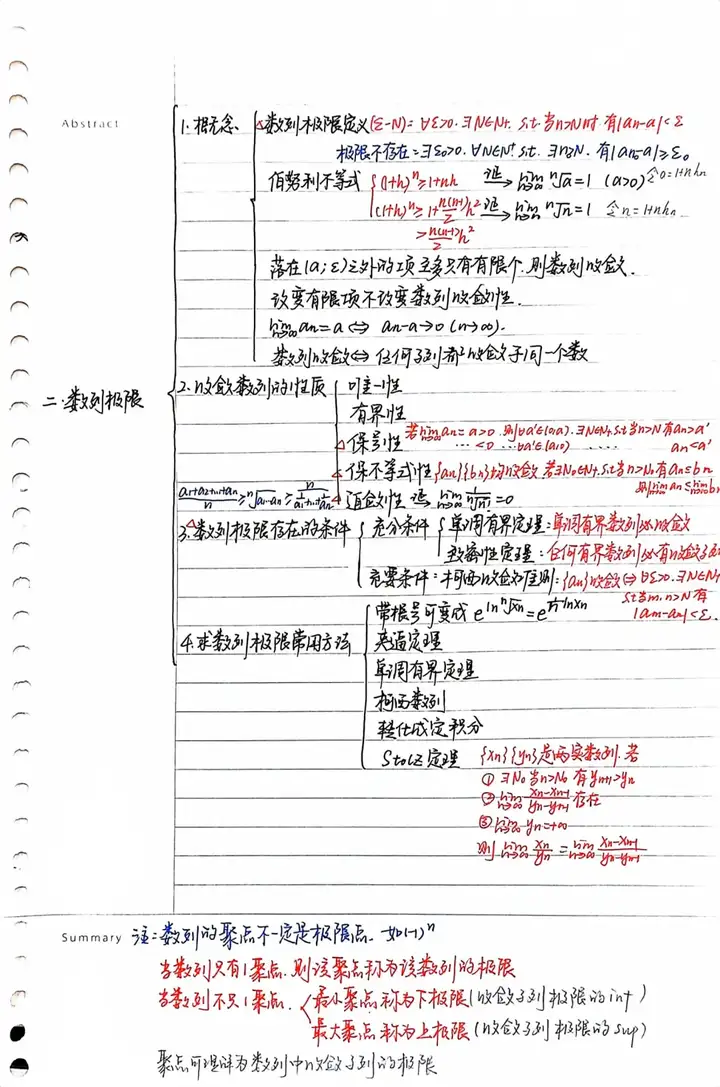 Abstract
二.数列极限
1.概念.
△数列极限定义(ε-N)：∀ε>0.∃N∈N+.s.t.当n>N时 有|an-a|<ε
极限不存在：∃ε0>0.∀N∈N+ s.t. ∃n≥N.有|an-a|≥ε0
伯努利不等式 (1+h)^n≥1+nh 证→ lim n→∞ ⁿ√a=1 (a>0) 令a=1+nhn
(1+h)^n≥1+n(n-1)/2 h² 证→ lim n→∞ ⁿ√n=1 令n=1+nhn
>n(n-1)/2 h²
落在(a;ε)之外的项至多只有有限个.则数列收敛.
改变有限项不改变数列收敛性.
lim n→∞ an=a ⇔ an-a→0 (n→∞).
数列收敛⇔任何子列都收敛于同一个数
2.收敛数列的性质
唯一性
有界性
△保号性 若lim n→∞ an=a>0.则∀a'∈(0,a).∃N∈N+.s.t.当n>N有an>a'
…<0 …∀a'∈(a,0) …… an<a'
△保不等式性{an}{bn}均收敛.若∃N0∈N+.s.t.当n>N0有an≤bn
则lim n→∞ an≤lim n→∞ bn
(a1+a2+…+an)/n≥ⁿ√(a1…an)≥n/(1/a1+…+1/an)
△迫敛性 证 lim n→∞ 1/ⁿ√n!=0
△3.数列极限存在的条件
充分条件 单调有界定理：单调有界数列必收敛
致密性定理：任何有界数列必有收敛子列
充要条件：柯西收敛准则：{an}收敛⇔∀ε>0.∃N∈N+
s.t当m.n>N有
|am-an|<ε.
4.求数列极限常用方法
带根号可变成 e^(ln ⁿ√xn)=e^(1/n·lnxn)
夹逼定理
单调有界定理
柯西数列
转化成定积分
Stolz定理 {xn}{yn}是两实数列.若
①∃N0当n>N0 有yn+1>yn
②lim n→∞ (xn-xn-1)/(yn-yn-1)存在
③lim n→∞ yn=+∞
则lim n→∞ xn/yn=lim n→∞ (xn-xn-1)/(yn-yn-1)
Summary 注：数列的聚点不一定是极限点.如(-1)^n
当数列只有1聚点.则该聚点称为该数列的极限
当数列不只1聚点. 最小聚点称为下极限(收敛子列极限的inf)
最大聚点称为上极限(收敛子列极限的sup)
聚点可理解为数列中收敛子列的极限